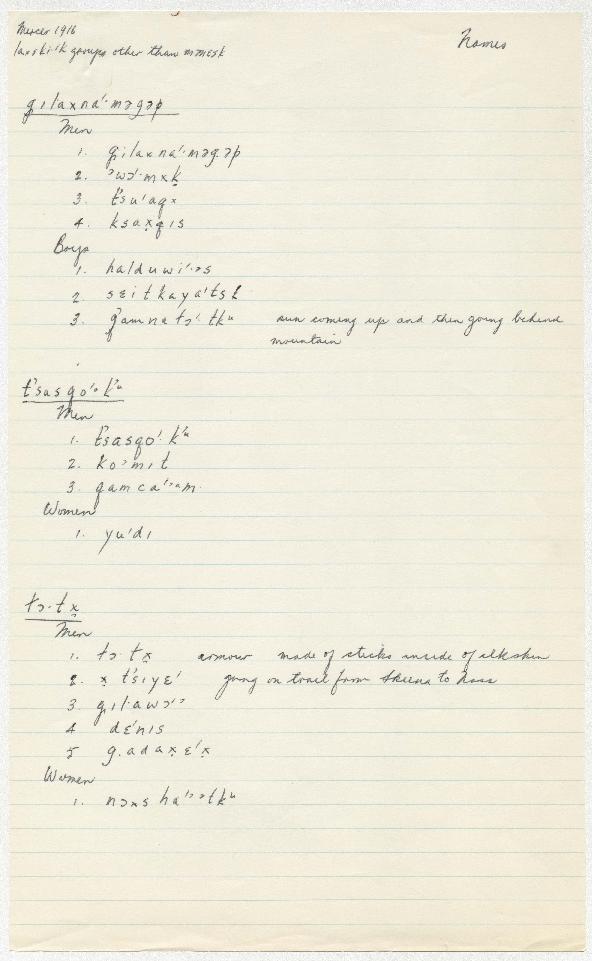 Mercer 1916
Names
laxski·k groups other than mmesk
gılaxna'·məgəp
Men
1. gılaxna'·məgəp
2. ɔ'wɔ'·mxk̲
3. t's u'aqx
4. ksax̣qıs
Boys
1. halduwi'·ɔs
2. sɛitkaya'tsł
3. g̓amnatɔ'·tkᵘ sun coming up and then going behind
mountain
t's̓asqo'·k'ᵘ
Men
1. t's̓asqo'·k'ᵘ
2. ko'mıt
3. qamca'ɔam
Women
1. yu'dı
tɔ·tx̣
Men
1. tɔ·tx̣ armour made of sticks inside of elkskin
2. x̣ t'sıyɛ' going on trail from Skeena to Nass
3. gıt·awɔ'ɔ
4 dɛ'nıs
5 g.adax̣ɛ'x̣
Women
1. nɔxs ha'ɔɔtkᵘ